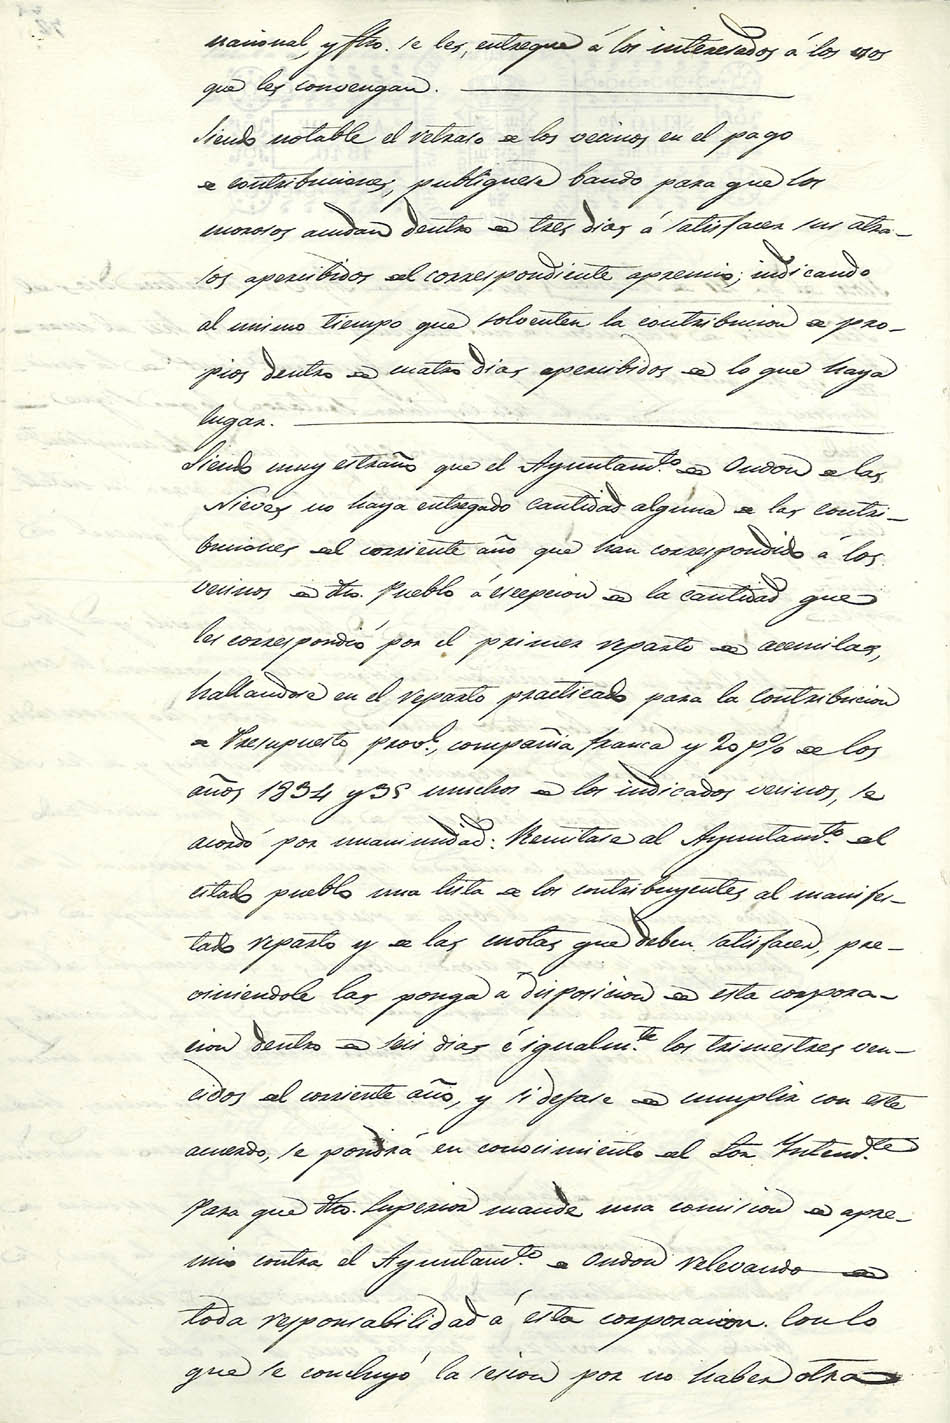 nacional, y fho. se les, entregue á los interesados á los usos
que les convengan.
Siendo notable el retraso de los vecinos en el pago
de contribuciones, publiquese bando para que los
morosos acudan dentro de tres dias á satisfacer sus atra-
sos apercibidos del correspondiente apremio; indicando
al mismo tiempo que solventen la contribucion de pro-
pios dentro de cuatro dias apercibidos de lo que haya
lugar.
Siendo muy estraño que el Ayuntamto. de Ondon de las
Nieves no haya entregado cantidad alguna de las contri-
buciones del corriente año que han correspondido á los
vecinos de dho. Pueblo á escepcion de la cantidad que
les correspondió por el primer reparto de acemilas,
hallandose en el reparto practicado para la contribucion
de Presupuesto provl., compañia franca y 20 p% de los
años 1834 y 35 muchos de los indicados vecinos, se
acordó por unanimidad: Remitase al Ayuntamto. del
citado pueblo una lista de los contribuyentes al manifes-
tado reparto y de las cuotas que deben satisfacer, pre-
viniendole las ponga á disposicion de esta corpora-
cion dentro de seis dias é igualmte. los trimestres ven-
cidos del corriente año, y si dejase de cumplir con este
acuerdo, se pondrá en conocimiento del Sor. Intendte.
Para que dho. Superior mande una comision de apre-
mio contra el Ayuntamto. de Ondon relevando de
toda responsabilidad á esta corporacion. Con lo
que se concluyó la sesion por no haber otra